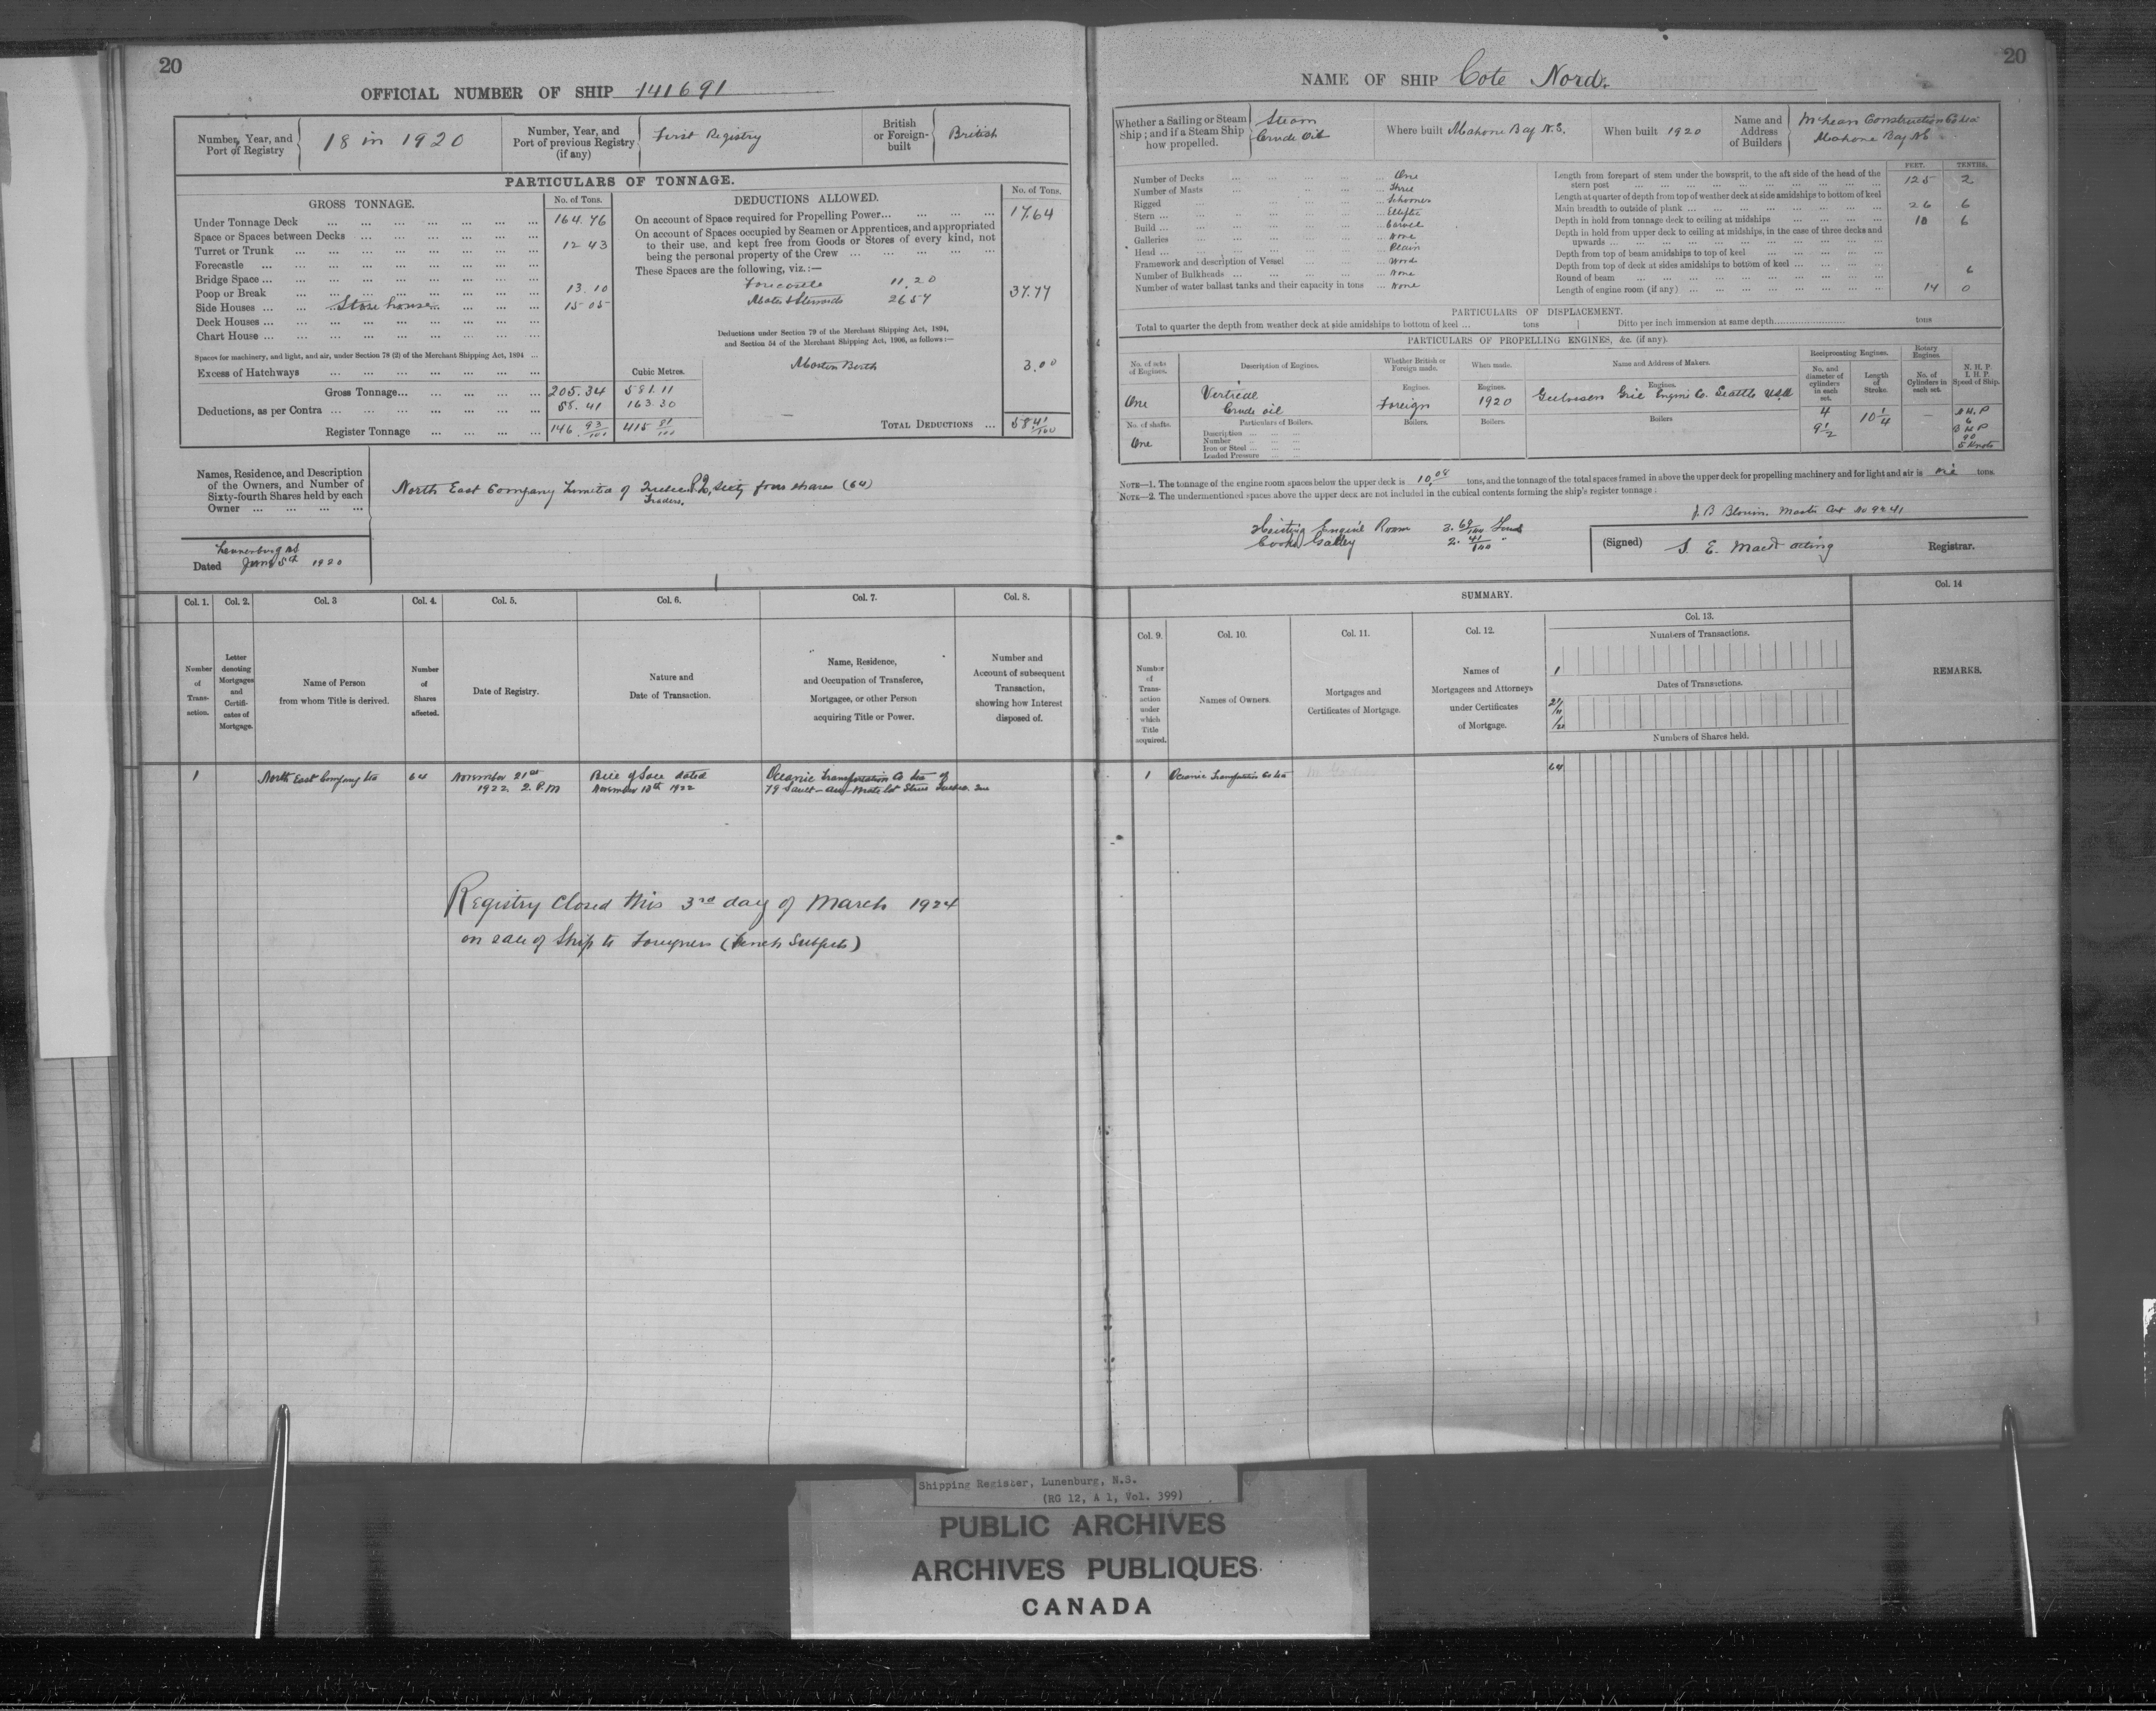 20
OFFICIAL NUMBER OF SHIP 141691
Number, Year, and Port of Registry 18 in 1920
Number, Year, and Port of previous Registry (if any) First Registry
British or Foreign-built British
PARTICULARS OF TONNAGE.
GROSS TONNAGE. No. of Tons.
Under Tonnage Deck 164.76
Space or Spaces between Decks
Turret or Trunk 12 43
Forecastle
Bridge Space
Poop or Break 13.10
Side Houses Store house 15.05
Deck Houses
Chart House
Spaces for machinery, and light, and air, under Section 78 (2) of the Merchant Shipping Act, 1894
Excess of Hatchways
Cubic Metres.
Gross Tonnage 205.34 581.11
Deductions, as per Contra 58.41 163.30
Register Tonnage 146 93/100 415 81/100
DEDUCTIONS ALLOWED. No. of Tons.
On account of Space required for Propelling Power 17.64
On account of Spaces occupied by Seamen or Apprentices, and appropriated
to their use, and kept free from Goods or Stores of every kind, not
being the personal property of the Crew
These Spaces are the following, viz.:—
Forecastle 11.20
Mates & Stewards 26.57 37.77
Deductions under Section 79 of the Merchant Shipping Act, 1894,
and Section 54 of the Merchant Shipping Act, 1906, as follows:—
Masters Berth 3.00
TOTAL DEDUCTIONS 58 41/100
Names, Residence, and Description of the Owners, and Number of Sixty-fourth Shares held by each Owner
North East Company Limited of Quebec P.Q. sixty four shares (64)
Traders.
Lunenburg NS
Dated June 5th 1920
Col. 1. Col. 2. Col. 3 Col. 4. Col. 5. Col. 6. Col. 7. Col. 8.
Number of Transaction.
Letter denoting Mortgages and Certificates of Mortgage.
Name of Person from whom Title is derived.
Number of Shares affected.
Date of Registry.
Nature and Date of Transaction.
Name, Residence, and Occupation of Transferee, Mortgagee, or other Person acquiring Title or Power.
Number and Account of subsequent Transaction, showing how Interest disposed of.
1 North East Company Ltd 64 November 21st 1922 2 P.M
Bill of Sale dated November 13th 1922
Oceanic Transportation Co Ltd of
79 Sault-au-Matelot Street Quebec. Que
Registry Closed this 3rd day of March 1924
on sale of Ship to Foreigners (French Subjects)
20
NAME OF SHIP Cote Nord.
Whether a Sailing or Steam Ship; and if a Steam Ship how propelled. Steam Crude Oil
Where built Mahone Bay N.S.
When built 1920
Name and Address of Builders McLean Construction Co Ltd Mahone Bay NS
Number of Decks One
Number of Masts Three
Rigged Schooner
Stern Elliptic
Build Carvel
Galleries None
Head Plain
Framework and description of Vessel Wood
Number of Bulkheads None
Number of water ballast tanks and their capacity in tons None
FEET. TENTHS.
Length from forepart of stem under the bowsprit, to the aft side of the head of the stern post 125 2
Length at quarter of depth from top of weather deck at side amidships to bottom of keel
Main breadth to outside of plank 26 6
Depth in hold from tonnage deck to ceiling at midships 10 6
Depth in hold from upper deck to ceiling at midships, in the case of three decks and upwards
Depth from top of beam amidships to top of keel
Depth from top of deck at sides amidships to bottom of keel
Round of beam 6
Length of engine room (if any) 14 0
PARTICULARS OF DISPLACEMENT.
Total to quarter the depth from weather deck at side amidships to bottom of keel ... tons Ditto per inch immersion at same depth tons
PARTICULARS OF PROPELLING ENGINES, &c. (if any).
No. of sets of Engines. Description of Engines. Whether British or Foreign made. When made. Name and Address of Makers. Reciprocating Engines. Rotary Engines. N. H. P. I. H. P. Speed of Ship.
No. and diameter of cylinders in each set. Length of Stroke. No. of Cylinders in each set.
Engines. Engines. Engines.
One Vertical Crude oil Foreign 1920 Engine Co. Seattle USA
4 9 1/2 10 1/4 —
N.H.P 6 B H P 90 5 Knots
No. of shafts. Particulars of Boilers. Boilers. Boilers. Boilers
One
Description
Number
Iron or Steel
Loaded Pressure
NOTE—1. The tonnage of the engine room spaces below the upper deck is 10.08 tons, and the tonnage of the total spaces framed in above the upper deck for propelling machinery and for light and air is nil tons.
NOTE—2. The undermentioned spaces above the upper deck are not included in the cubical contents forming the ship's register tonnage:
J. B Blouin, Master Cert No 9241
Hoisting Engine Room 3. 69/100 Tons
Cooks Galley 2. 41/100 "
(Signed) S. E. Mack acting Registrar.
SUMMARY.
Col. 9. Col. 10. Col. 11. Col. 12. Col. 13. Col. 14
Number of Transaction under which Title acquired.
Names of Owners.
Mortgages and Certificates of Mortgage.
Names of Mortgagees and Attorneys under Certificates of Mortgage.
Numbers of Transactions.
1
Dates of Transactions.
21/11/22
Numbers of Shares held.
REMARKS.
1 Oceanic Transportation Co Ltd 64
Shipping Register, Lunenburg, N.S.
(RG 12, A 1, Vol. 399)
PUBLIC ARCHIVES
ARCHIVES PUBLIQUES
CANADA